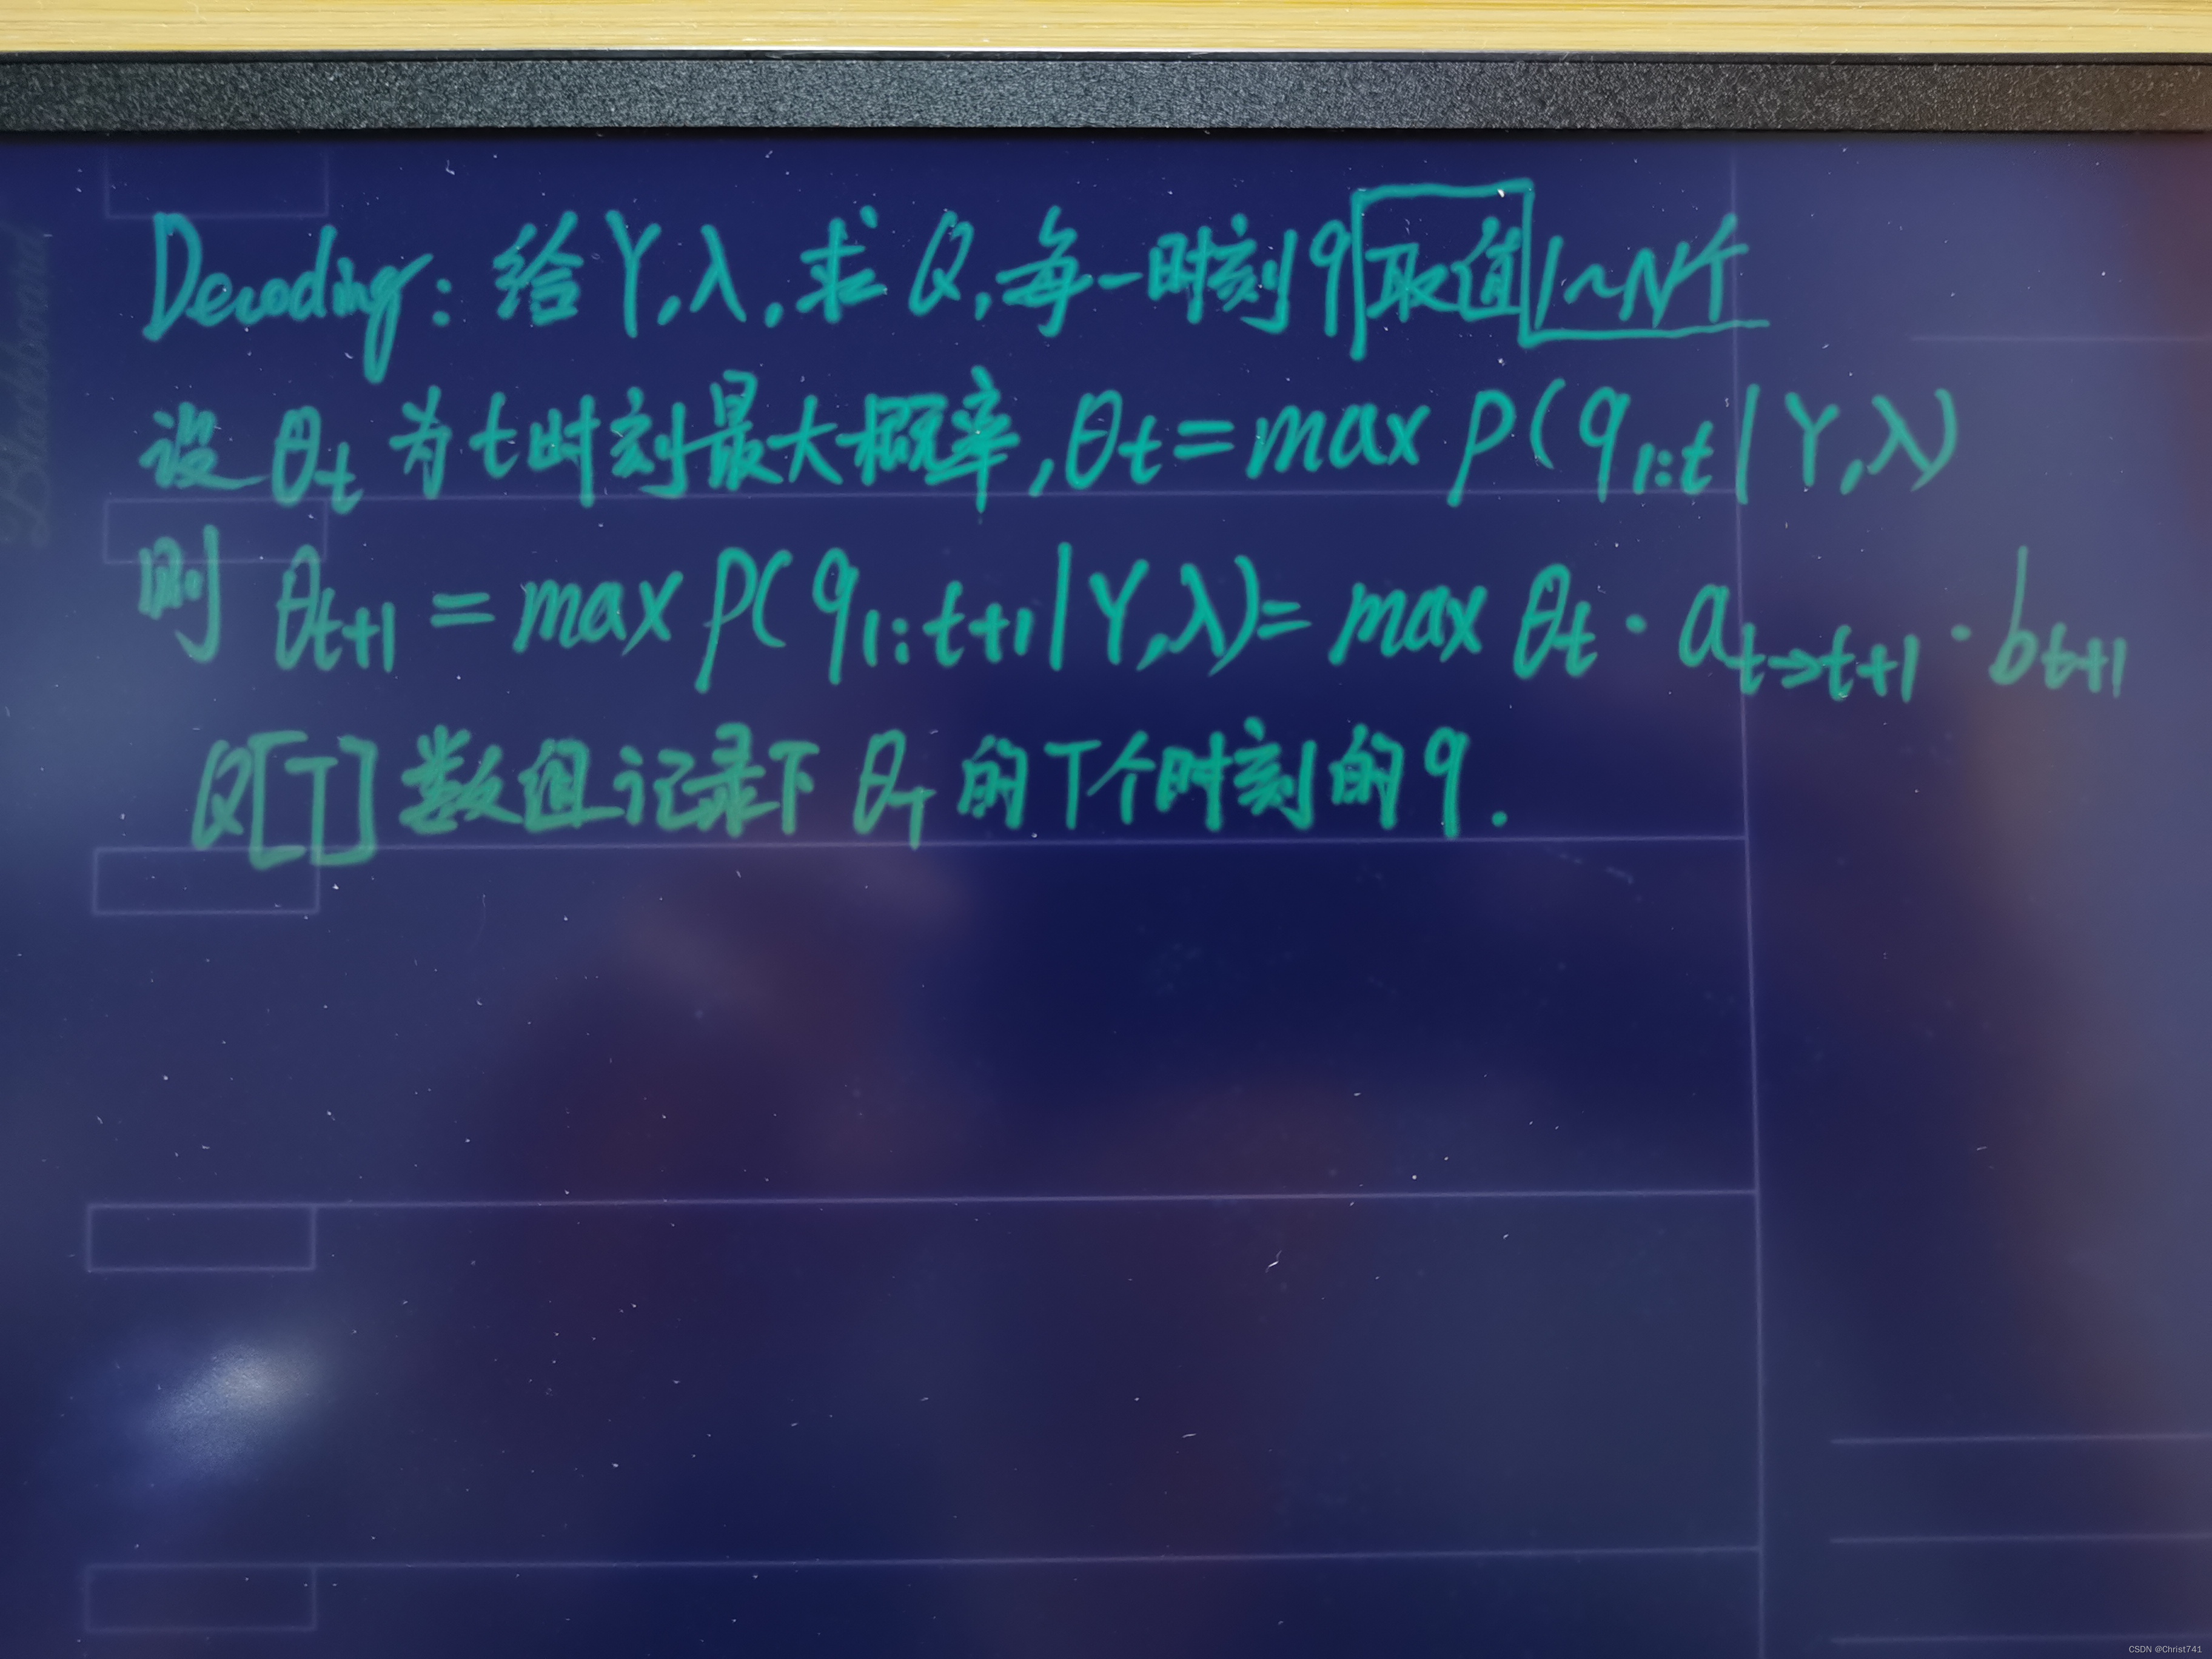 Decoding: 给Y,λ,求Q,每一时刻q取值1~N个
设θt为t时刻最大概率,θt=max P(q1:t|Y,λ)
则 θt+1 = max P(q1:t+1|Y,λ)= max θt·at→t+1·bt+1
Q[T]数组记录下θT的T个时刻的q.
Blackboard
CSDN @Christ741